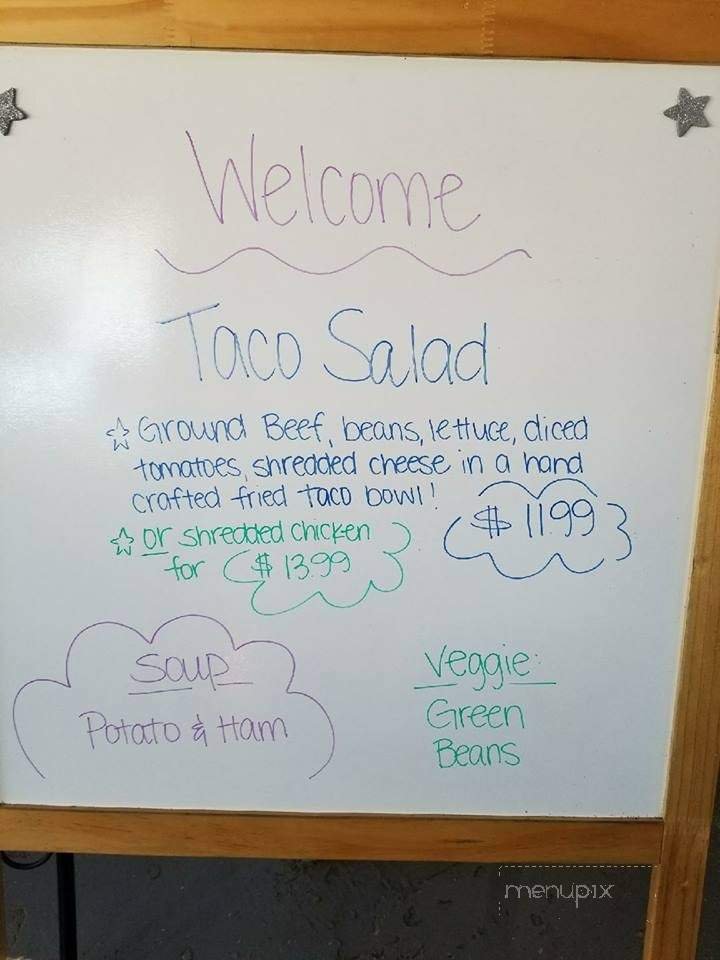 Welcome
Taco Salad
☆ Ground Beef, beans, lettuce, diced
tomatoes, shredded cheese in a hand
crafted fried taco bowl!
$11.99
☆ or shredded chicken
for $13.99
Soup
Potato & Ham
Veggie:
Green
Beans
menupix